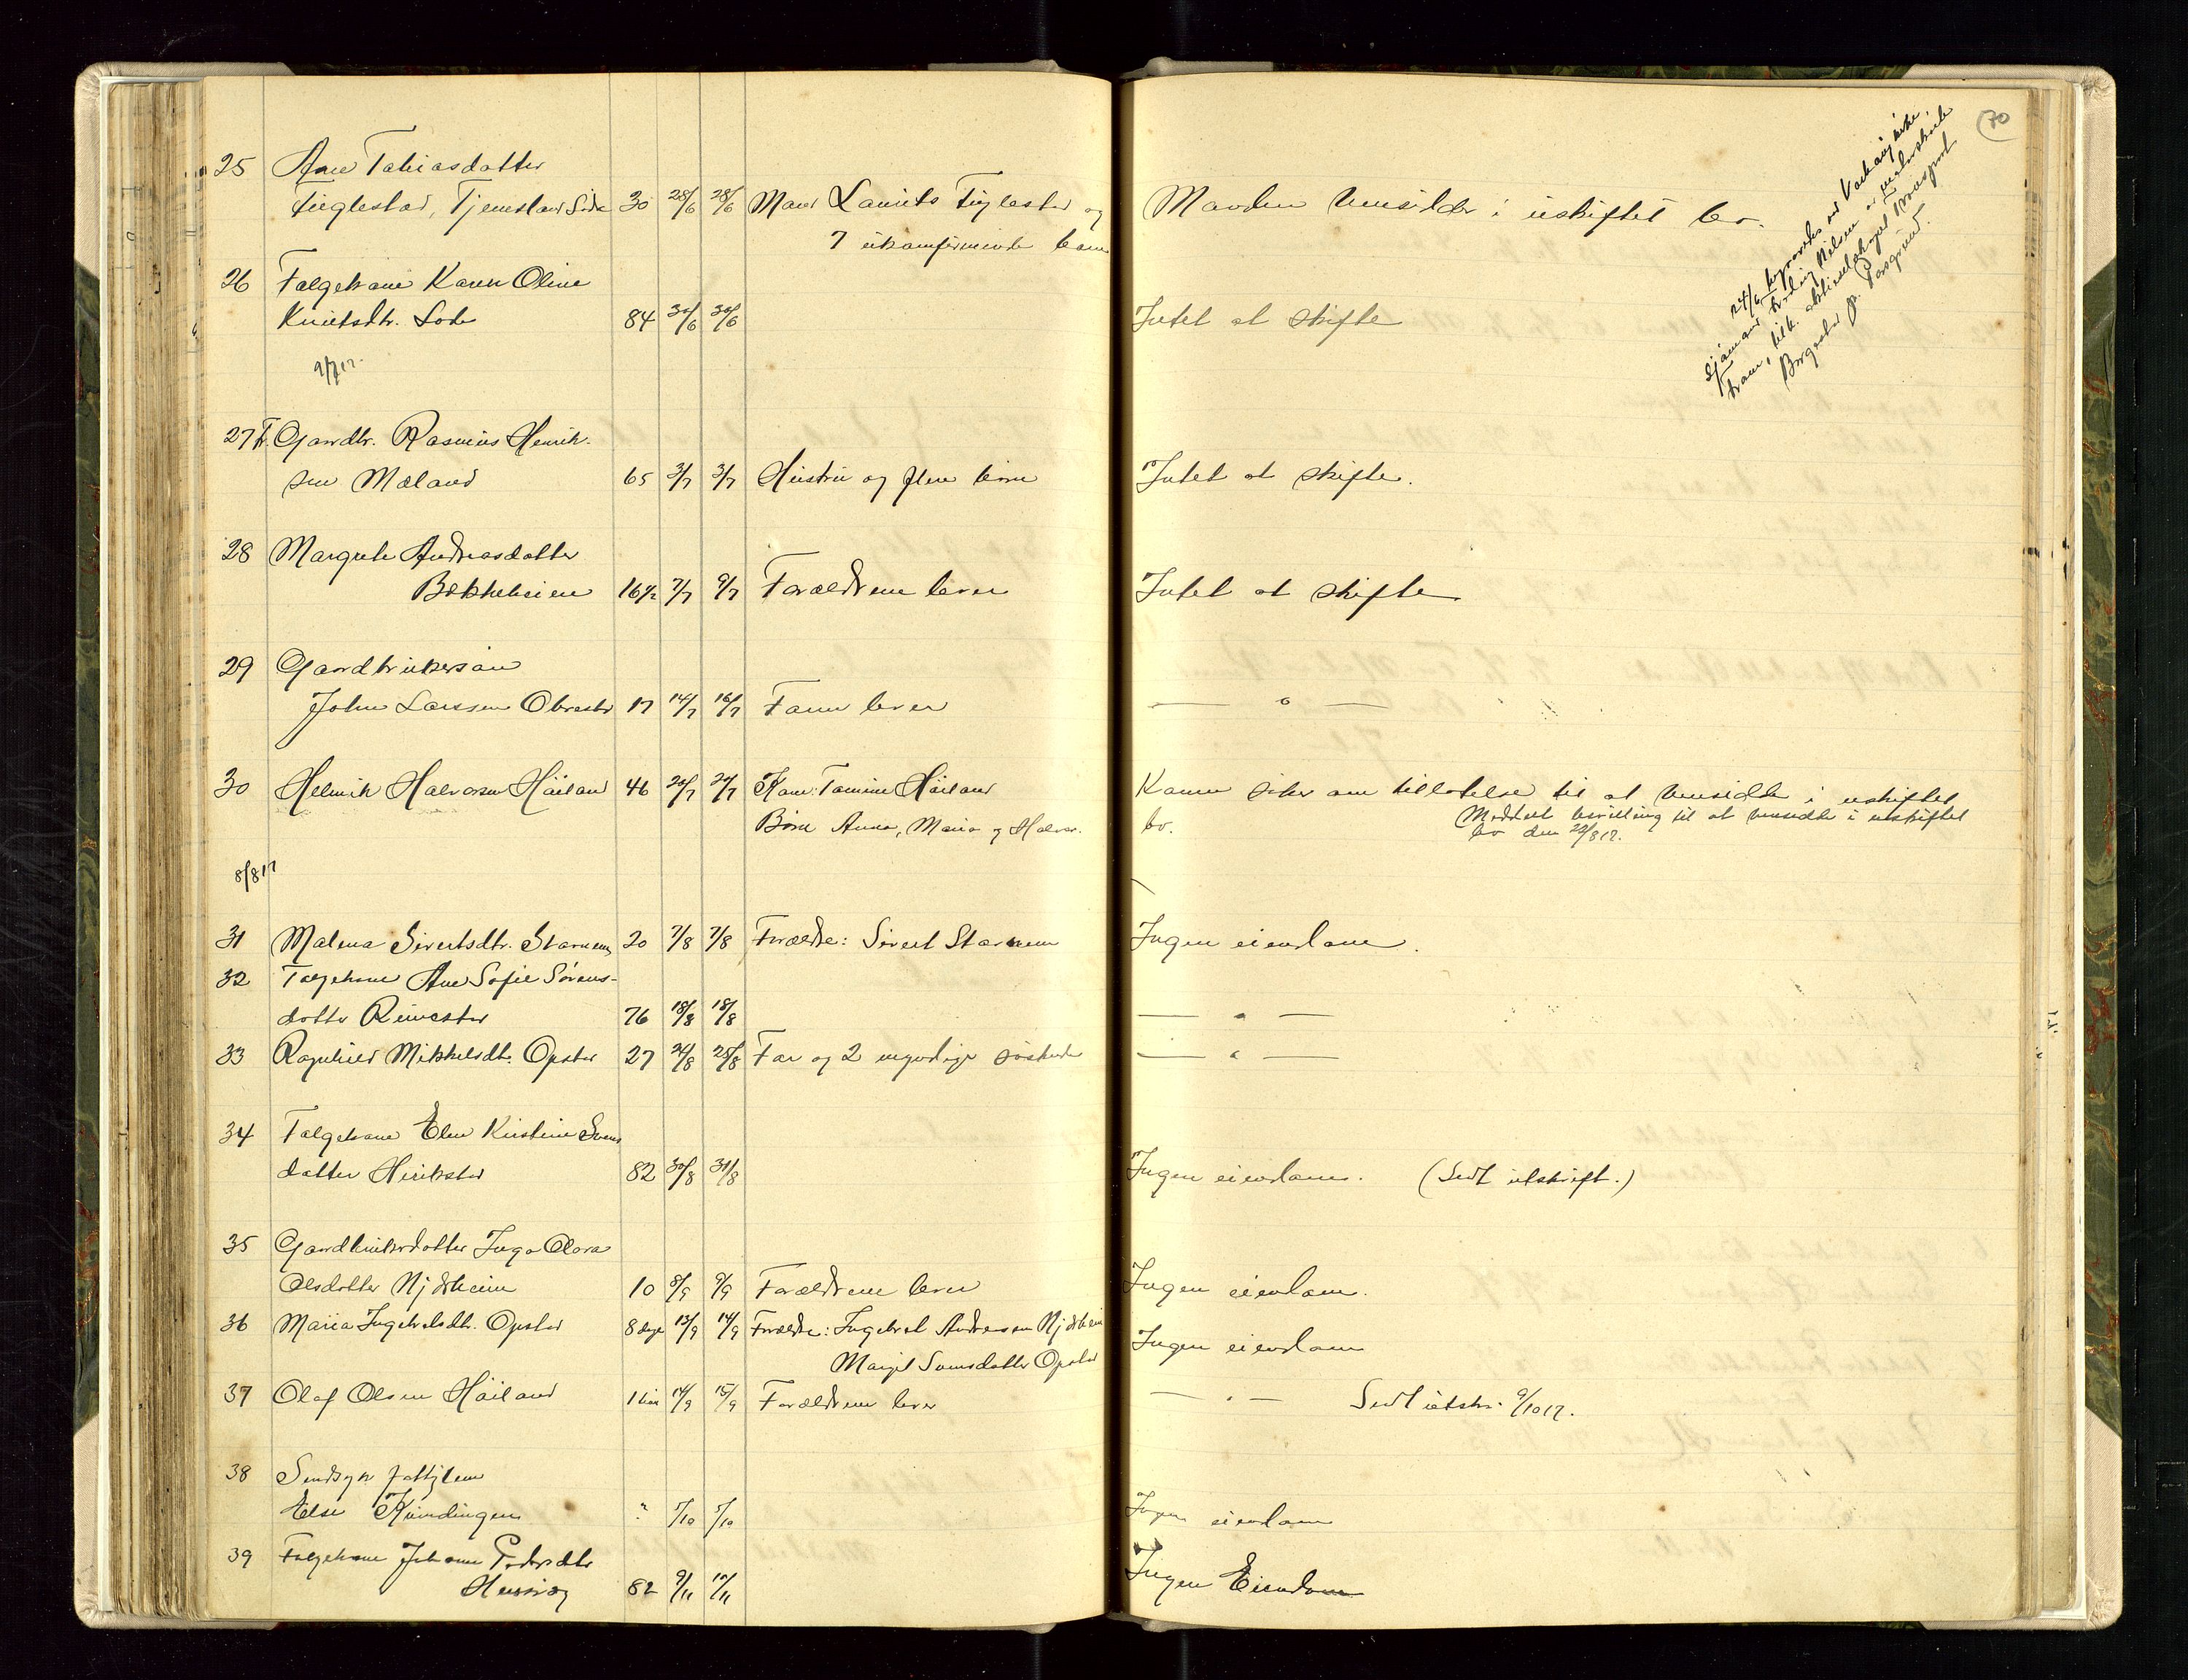 (70
25 Ane Tobiasdatter
Fuglestad, Tjemsland Sirdal 30 28/6 28/6 Mand Laurits Fuglestad og Manden hensidder i uskiftet bo.
7 ukonfirmerede barn
24/6 begravedes ved Varhaug kirke,
sjømand Nielsen
Borgestad p. Porsgrund.
26 Følgekone Karen Oline
Knutsdtr. Lode 84 30/6 30/6 Intet at skifte
9/7 17.
27 F. Gaardbr. Rasmus Henrik-
sen Mæland 65 3/7 3/7 Hustru og flere børn Intet at skifte.
28 Margrete Andreasdatter
Bækkeheien 16 1/2 7/7 9/7 Forældrene lever Intet at skifte
29 Gaardbrukersøn
John Larssen Obrestad 17 14/7 16/7 Faren lever — " —
30 Helmik Halvorsen Høiland 46 20/7 21/7 Kone: Tomine Høiland Konen søker om tillatelse til at hensidde i uskiftet
Børn Anna, Maria og Halvor. bo. Meddelt bevilling til at hensidde i uskiftet
bo den 22/8 17.
8/8 17
31 Malena Sivertsdtr. Stavnem 20 7/8 7/8 Forældre: Sivert Stavnem Ingen eiendom.
32 Følgekone Ane Sofie Sørens-
datter Rimestad 76 18/8 18/8 — " —
33 Ragnhild Mikkelsdtr. Opstad 27 24/8 25/8 Far og 2 myndige søskende — " —
34 Følgekone Elen Kirstine Svens
datter Hirikstad 82 30/8 31/8 Ingen eiendom. (Sendt utskrift.)
35 Gaardbrukerdatter Inga Olava
Olsdatter Njærheim 10 8/9 9/9 Forældrene lever Ingen eiendom.
36 Maria Ingebretsdtr. Opstad 8 dage 13/9 14/9 Forældre: Ingebret Andreassen Njærheim Ingen eiendom
Margit Svensdatter Opstad
37 Olaf Olsen Høiland 1 time 14/9 15/9 Forældrene lever — " — Sendt utskr. 9/10 17.
38 Sindssyk fattiglem
Else Kvindingen ? 5/10 5/10 Ingen eiendom
39 Følgekone Johanne Pedersdtr
82 9/11 10/11 Ingen Eiendom